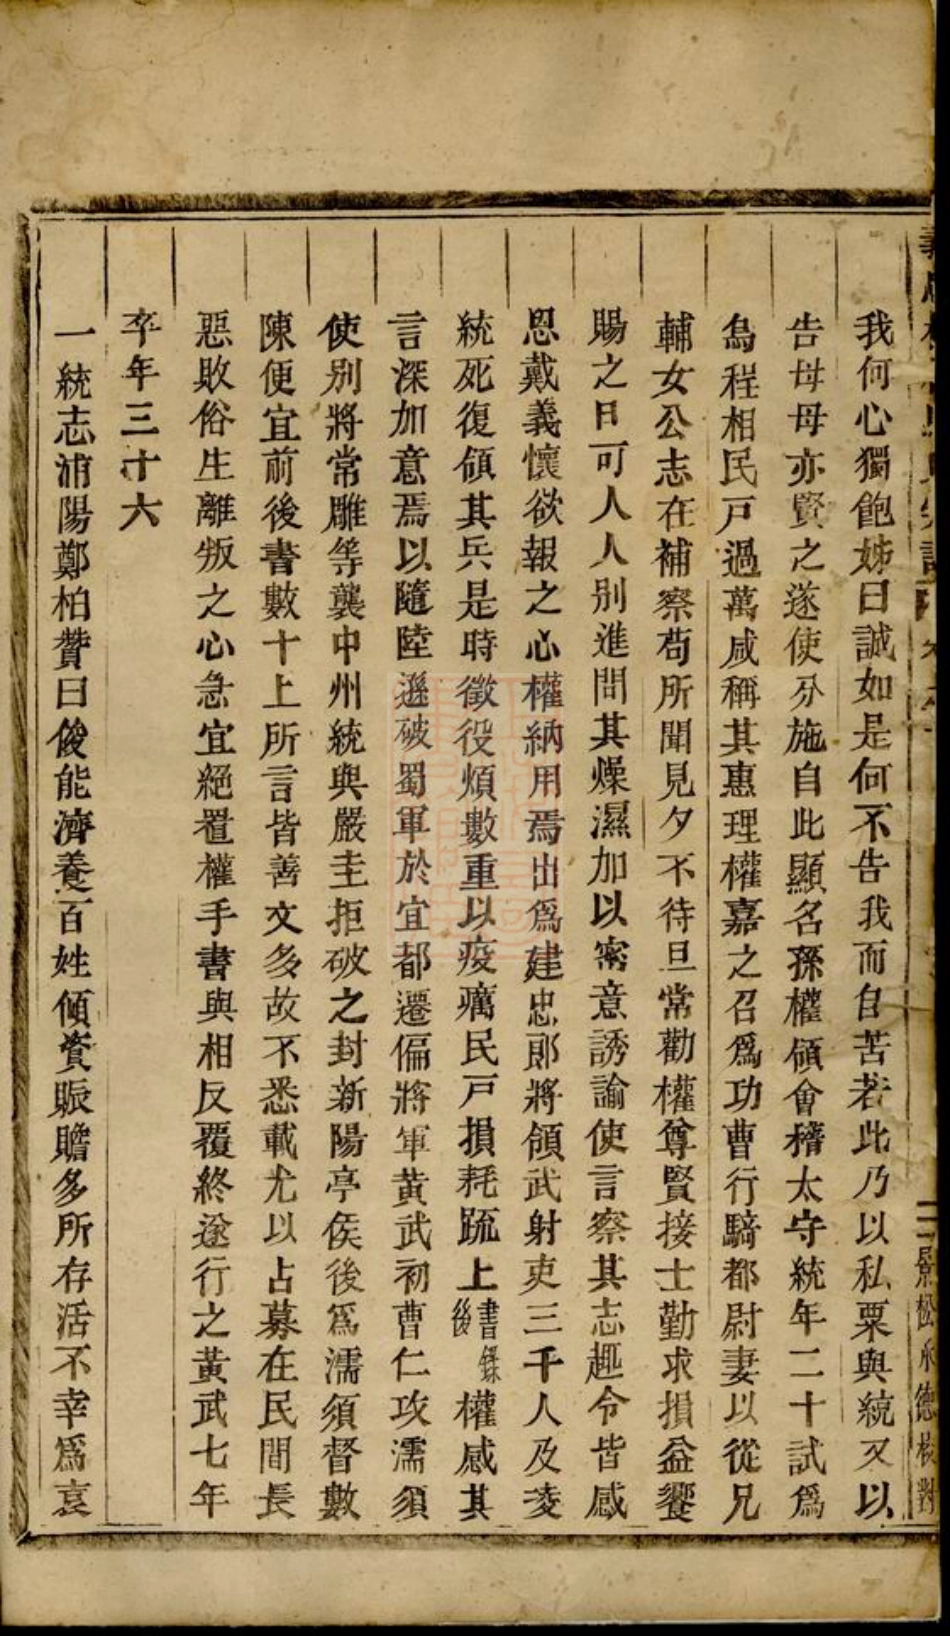 我何心獨飽姊曰誠如是何不告我而自苦若此乃以私粟與統又以
告母母亦賢之遂使分施自此顯名孫權領會稽太守統年二十試爲
烏程相民戸過萬咸稱其惠理權嘉之召爲功曹行騎都尉妻以從兄
輔女公志在補察苟所聞見夕不待旦常勸權尊賢接士勤求損益饗
賜之日可人人別進問其燥濕加以宻意誘諭使言察其志趣令皆感
恩戴義懷欲報之心權納用焉出爲建忠郎將領武射吏三千人及凌
統死復領其兵是時徵役煩數重以疫癘民戸損耗䟽上書錄後權感其
言深加意焉以隨陸遜破蜀軍於宜都遷偏將軍黄武初曹仁攻濡須
使別將常雕等襲中州統與嚴圭拒破之封新陽亭侯後爲濡須督數
陳便宜前後書數十上所言皆善文多故不悉載尤以占募在民間長
惡敗俗生離叛之心急宜絕置權手書與相反覆終遂行之黄武七年
卒年三十六
一統志浦陽鄭柏贊曰俊能濟養百姓傾資賑贍多所存活不幸爲袁